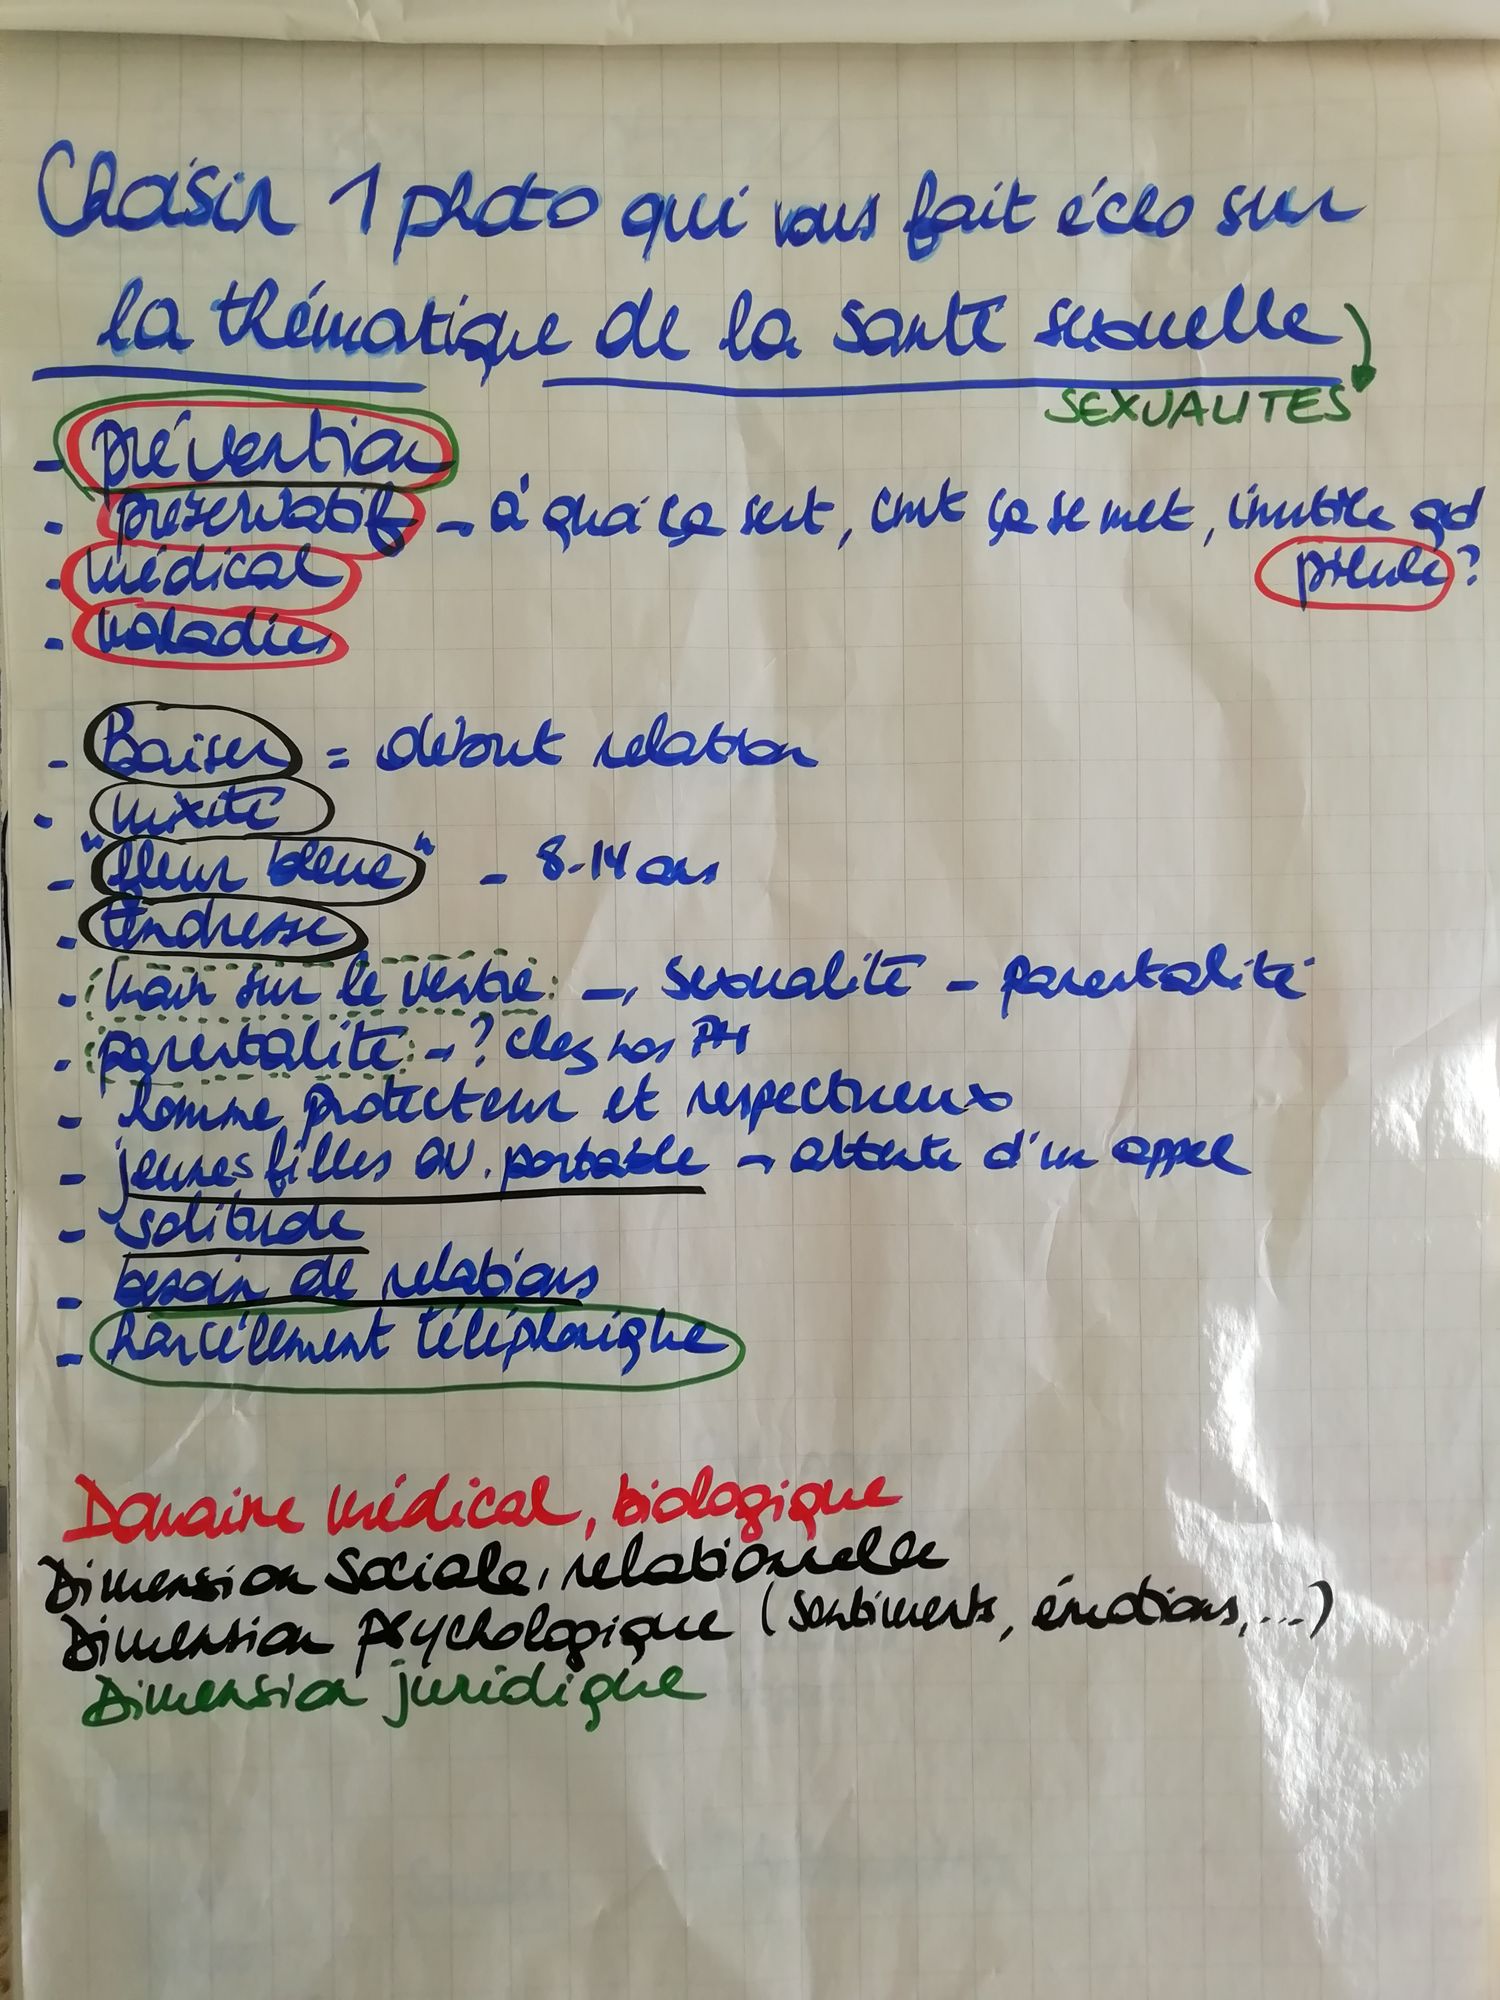 Choisir 1 photo qui vous fait écho sur
la thématique de la santé sexuelle
SEXUALITES
- prévention
- préservatif → à quoi ça sert, cmt ça se met, inutile qd
pilule ?
- médical
- maladies
- Baiser = début relation
- mixité
- "fleur bleue" - 8-14 ans
- tendresse
- main sur le ventre → sexualité - parentalité
- parentalité → ? chez nos PH
- homme protecteur et respectueux
- jeunes filles av. portable → attente d'un appel
- solitude
- besoin de relations
- harcèlement téléphonique
Domaine médical, biologique
Dimension sociale, relationnelle
Dimension psychologique (sentiments, émotions, ...)
Dimension juridique